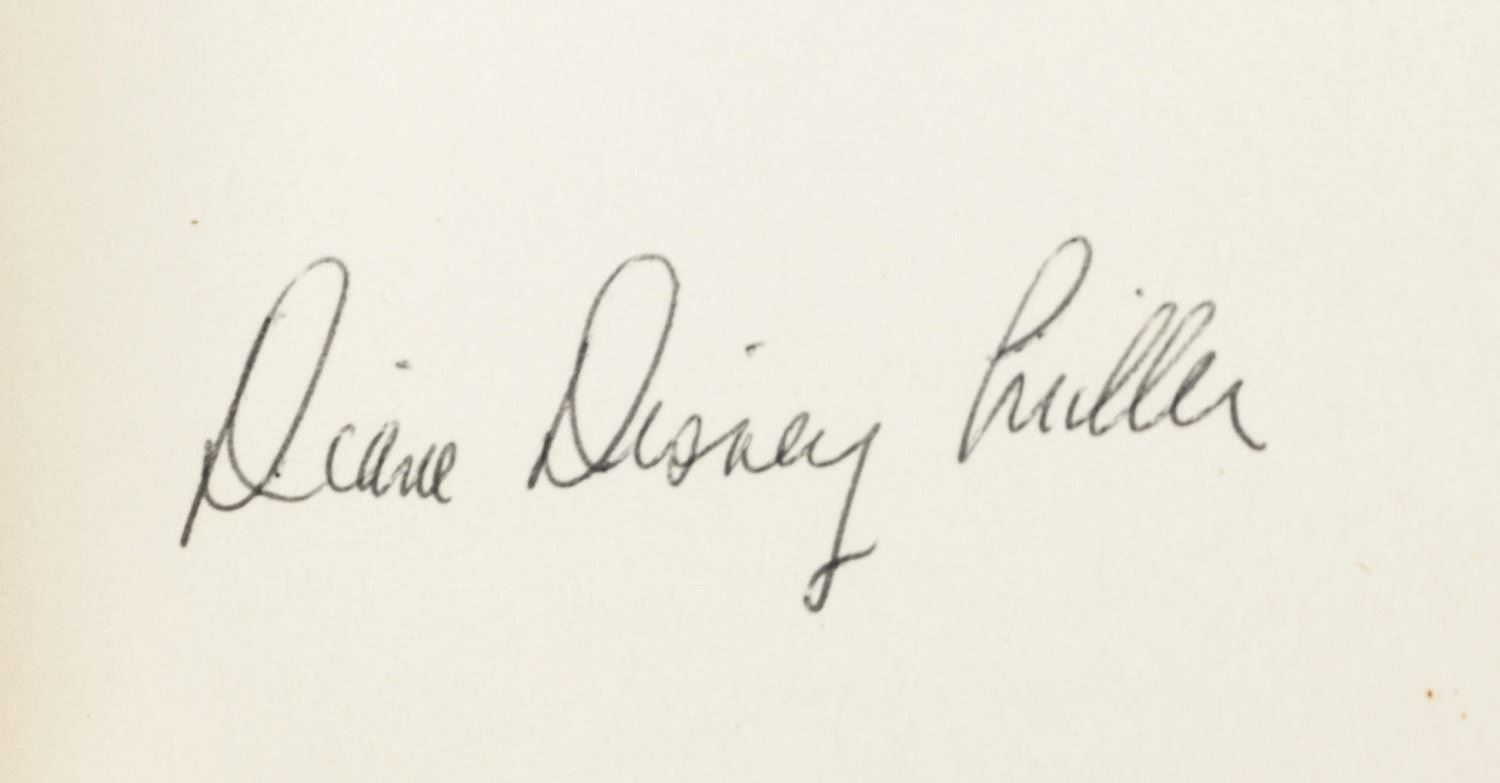 Diane Disney Miller